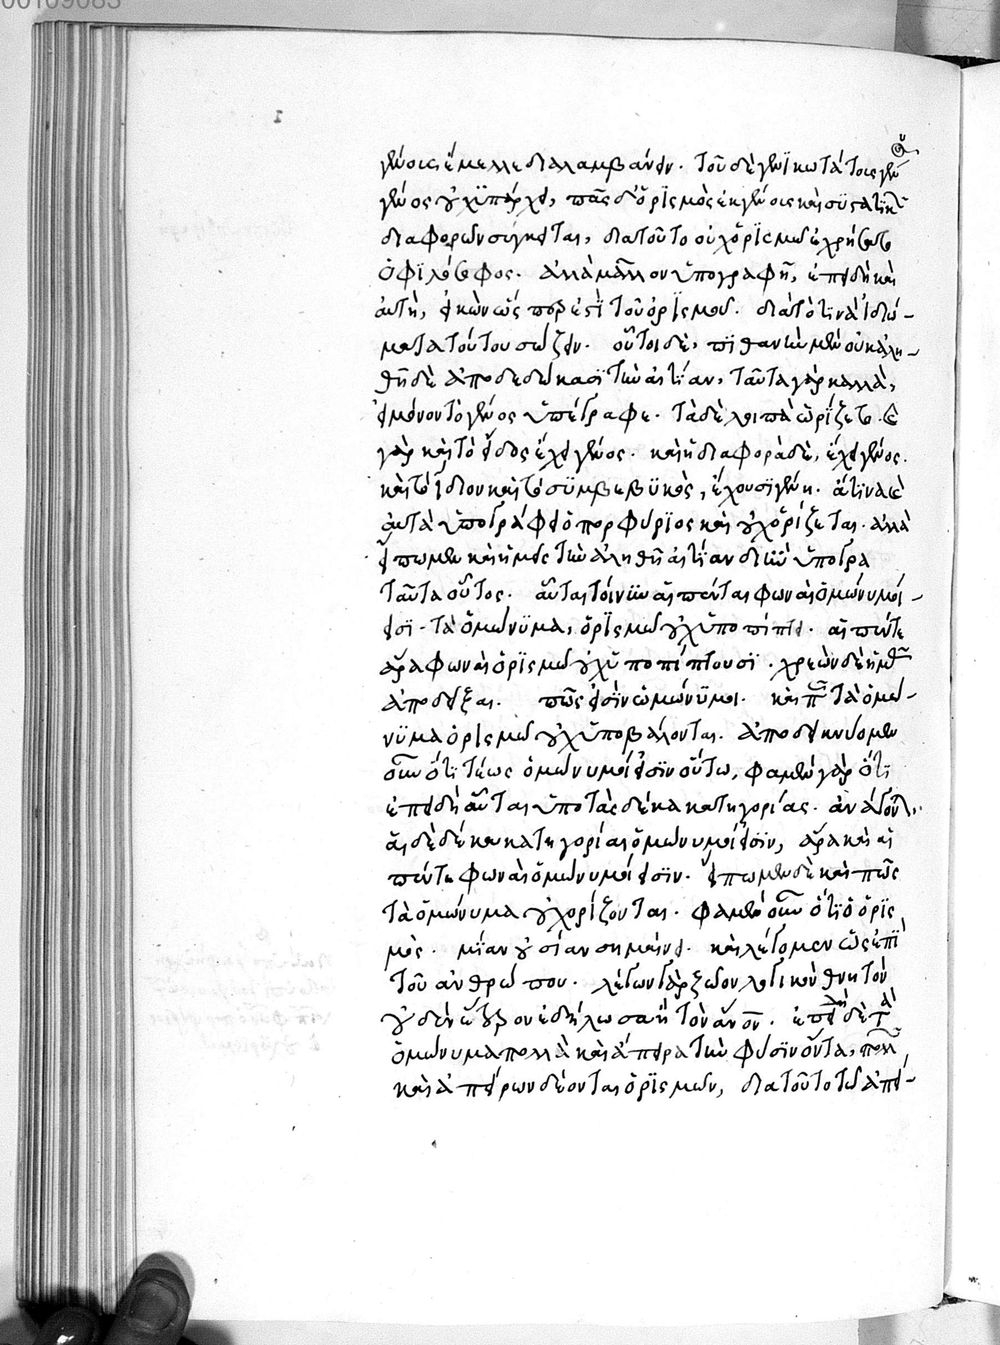 00109083
γένοις ἔμελλε διαλαμβάνειν. τοῦ δὲ γενικωτάτοις γέν
γένος οὐχ ὑπάρχει, πᾶς δ' ὁρισμὸς ἐκ γένοις καὶ συστατικ
διαφορῶν σύγκειται, διατοῦτο οὐχ ὁρισμῶ ἐχρήσατο
ὁ φιλόσοφος. ἀλλὰ μᾶλλον ὑπογραφῆ, ἐπειδὴ καὶ
αὐτὴ, εἰκὼν ὥσπερ ἐστὶ τοῦ ὁρισμοῦ. διατὸ τινὰ ἰδιώ-
ματα τούτου σώζειν. οὗτοι δὲ, πιθανὴν μὲν οὐκ ἀλη-
θῆ δὲ ἀποδεδώκασι τὴν αἰτίαν, ταῦτα γὰρ καλλὰ,
εἰ μόνον τὸ γένος ὑπέγραφε. τὰ δὲ λοιπὰ ὡρίζετο.
γὰρ καὶ τὸ εἶδος ἔχει γένος. καὶ ἡ διαφορὰ δὲ, ἔχει γένος.
καὶ τὸ ἴδιον καὶ τὸ συμβεβυκὸς, ἔχουσι γένη. ἅτινα
αὐτὰ ὑπογράφει ὁ πορφύριος καὶ οὐχ ὁρίζεται. ἀλλὰ
εἴπωμεν καὶ ἡμεῖς τὴν ἀληθῆ αἰτίαν διην ὑπογρα
ταῦτα οὗτος. αὗται τοίνυν αἱ πένται φωναὶ ὁμώνυμοί -
εἰσι. τὰ ὁμώνυμα, ὁρισμῶ οὐχ ὑποπίπτει. αἱ πέντε
ἄρα φωναὶ ὁρισμῶ οὐχ ὑποπίπτουσι. χρεὼν δὲ ἡμᾶς
ἀποδεῖξαι. πῶς εἰσὶν ὁμώνυμοι. καὶ πῶς τὰ ὁμω-
νυμα ὁρισμῶ οὐχ ὑποβάλονται. ἀποδεικνύομεν
οὖν ὅτι τέως ὁμώνυμοί εἰσιν οὕτω, φαμὲν γὰρ ὅτι
ἐπειδὴ αὗται ὑπὸ τὰς δέκα κατηγορίας. ἀνάγονται.
αἱ δὲ δέκα κατηγορίαι ὁμώνυμοί εἰσιν, ἄρα καὶ αἱ
πέντε φωναὶ ὁμώνυμοί εἰσιν. εἴπωμεν δὲ καὶ πῶς
τὰ ὁμώνυμα οὐχ ὁρίζονται. φαμὲν οὖν ὅτι ὁ ὁρισ
μὸς. μίαν οὐσίαν σημαίνει. καὶ λέγομεν ὡς ἐπὶ
τοῦ ἀνθρώπου. λέγων γὰρ ζῶον, λογικὸν θνητὸν
οὐδὲν ἕτερον ἐδήλωσα ἢ τὸν ἄνον. ἐπειδὴ δὲ τὰ
ὁμώνυμα πολλὰ καὶ ἄπειρα τὴν φύσιν ὄντα, πολλ
καὶ ἀπείρων δέονται ὁρισμῶν, διατοῦτο τῶ ἀπεί-